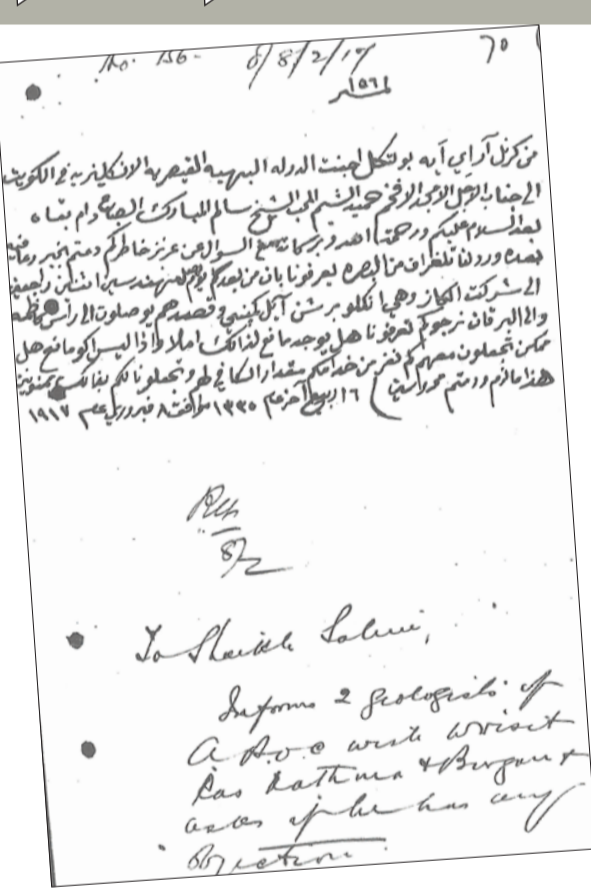 No. 156 - d/ 8/2/17 70
نمبر ١٥٦
من كرنل آر اي آيه بولتكل اجنت الدوله البهيه القيصريه الانكليزيه في الكويت
الى جناب الاجل الامجد الافخم حميد الشيم المحب الشيخ سالم المبارك الصباح دام بقاه
بعد السلام عليكم ورحمة الله وبركاته مع السوال عن عزيز خاطركم دمتم بخير
بعده ورد لنا تلغراف من البصره يعرفونا بان من بعد
الى شركت الكاز وهي انكلو برشن آيل كمبني وقصدهم يوصلون الى راس كاظمه
والى البرقان نرجوكم تعرفونا هل يوجد مانع لذالك ام لا واذا ليس اكو مانع هل
ممكن تجعلون معهم كم نفر من خدامكم مقدار الكافي لهم
هذا ما لزم ودمتم محروسين ١٦ ربيع آخر عام ١٣٣٥ موافق ٨ فبروري عام ١٩١٧
8/2
To Shaikh Salim,
Informs 2 geologists of
A.P.O.C wish to visit
Ras Kathma & Burgan &
asks if he has any
objection.